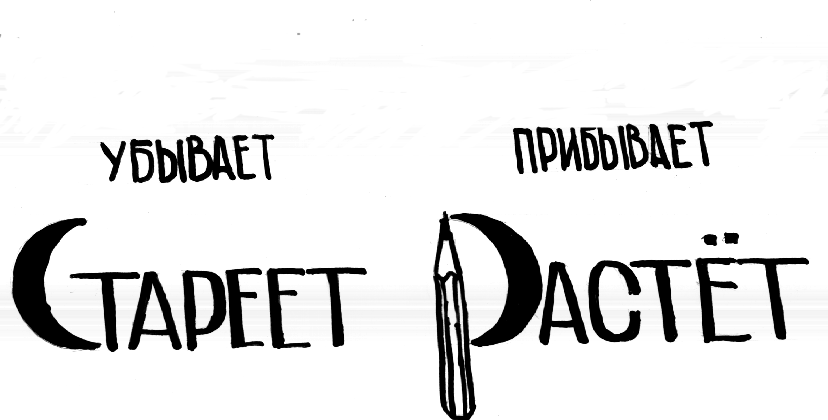 УБЫВАЕТ
СТАРЕЕТ
ПРИБЫВАЕТ
РАСТЁТ